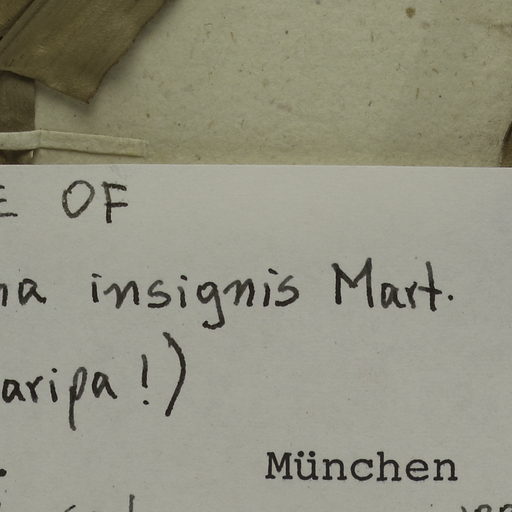 E OF
na insignis Mart.
aripa!)
München